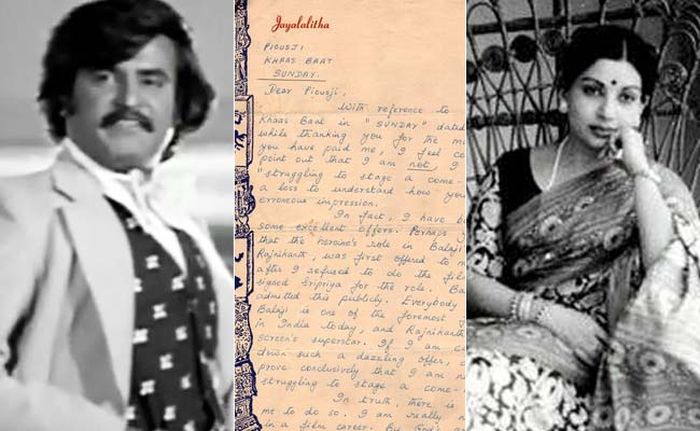 Jayalalitha
PIOUSJI
KHAAS BAAT
SUNDAY.
Dear Piousji,
With reference to
Khaas Baat in "SUNDAY" dated
while thanking you for the
you have paid me, I feel
point out that I am not, I
"struggling to stage a come-
a loss to understand how you
erroneous impression.
In fact, I have
some excellent offers. Perhaps
that the heroine's role in Balaji
Rajnikanth, was first offered to
after I refused to do the
signed Sripriya for the role.
admitted this publicly. Everybody
Balaji is one of the foremost
in India today, and Rajnikanth
screen's superstar. If I am
down such a dazzling offer,
prove conclusively that I am
struggling to stage a come-
In truth, there is
me to do so. I am really
in a film career. By